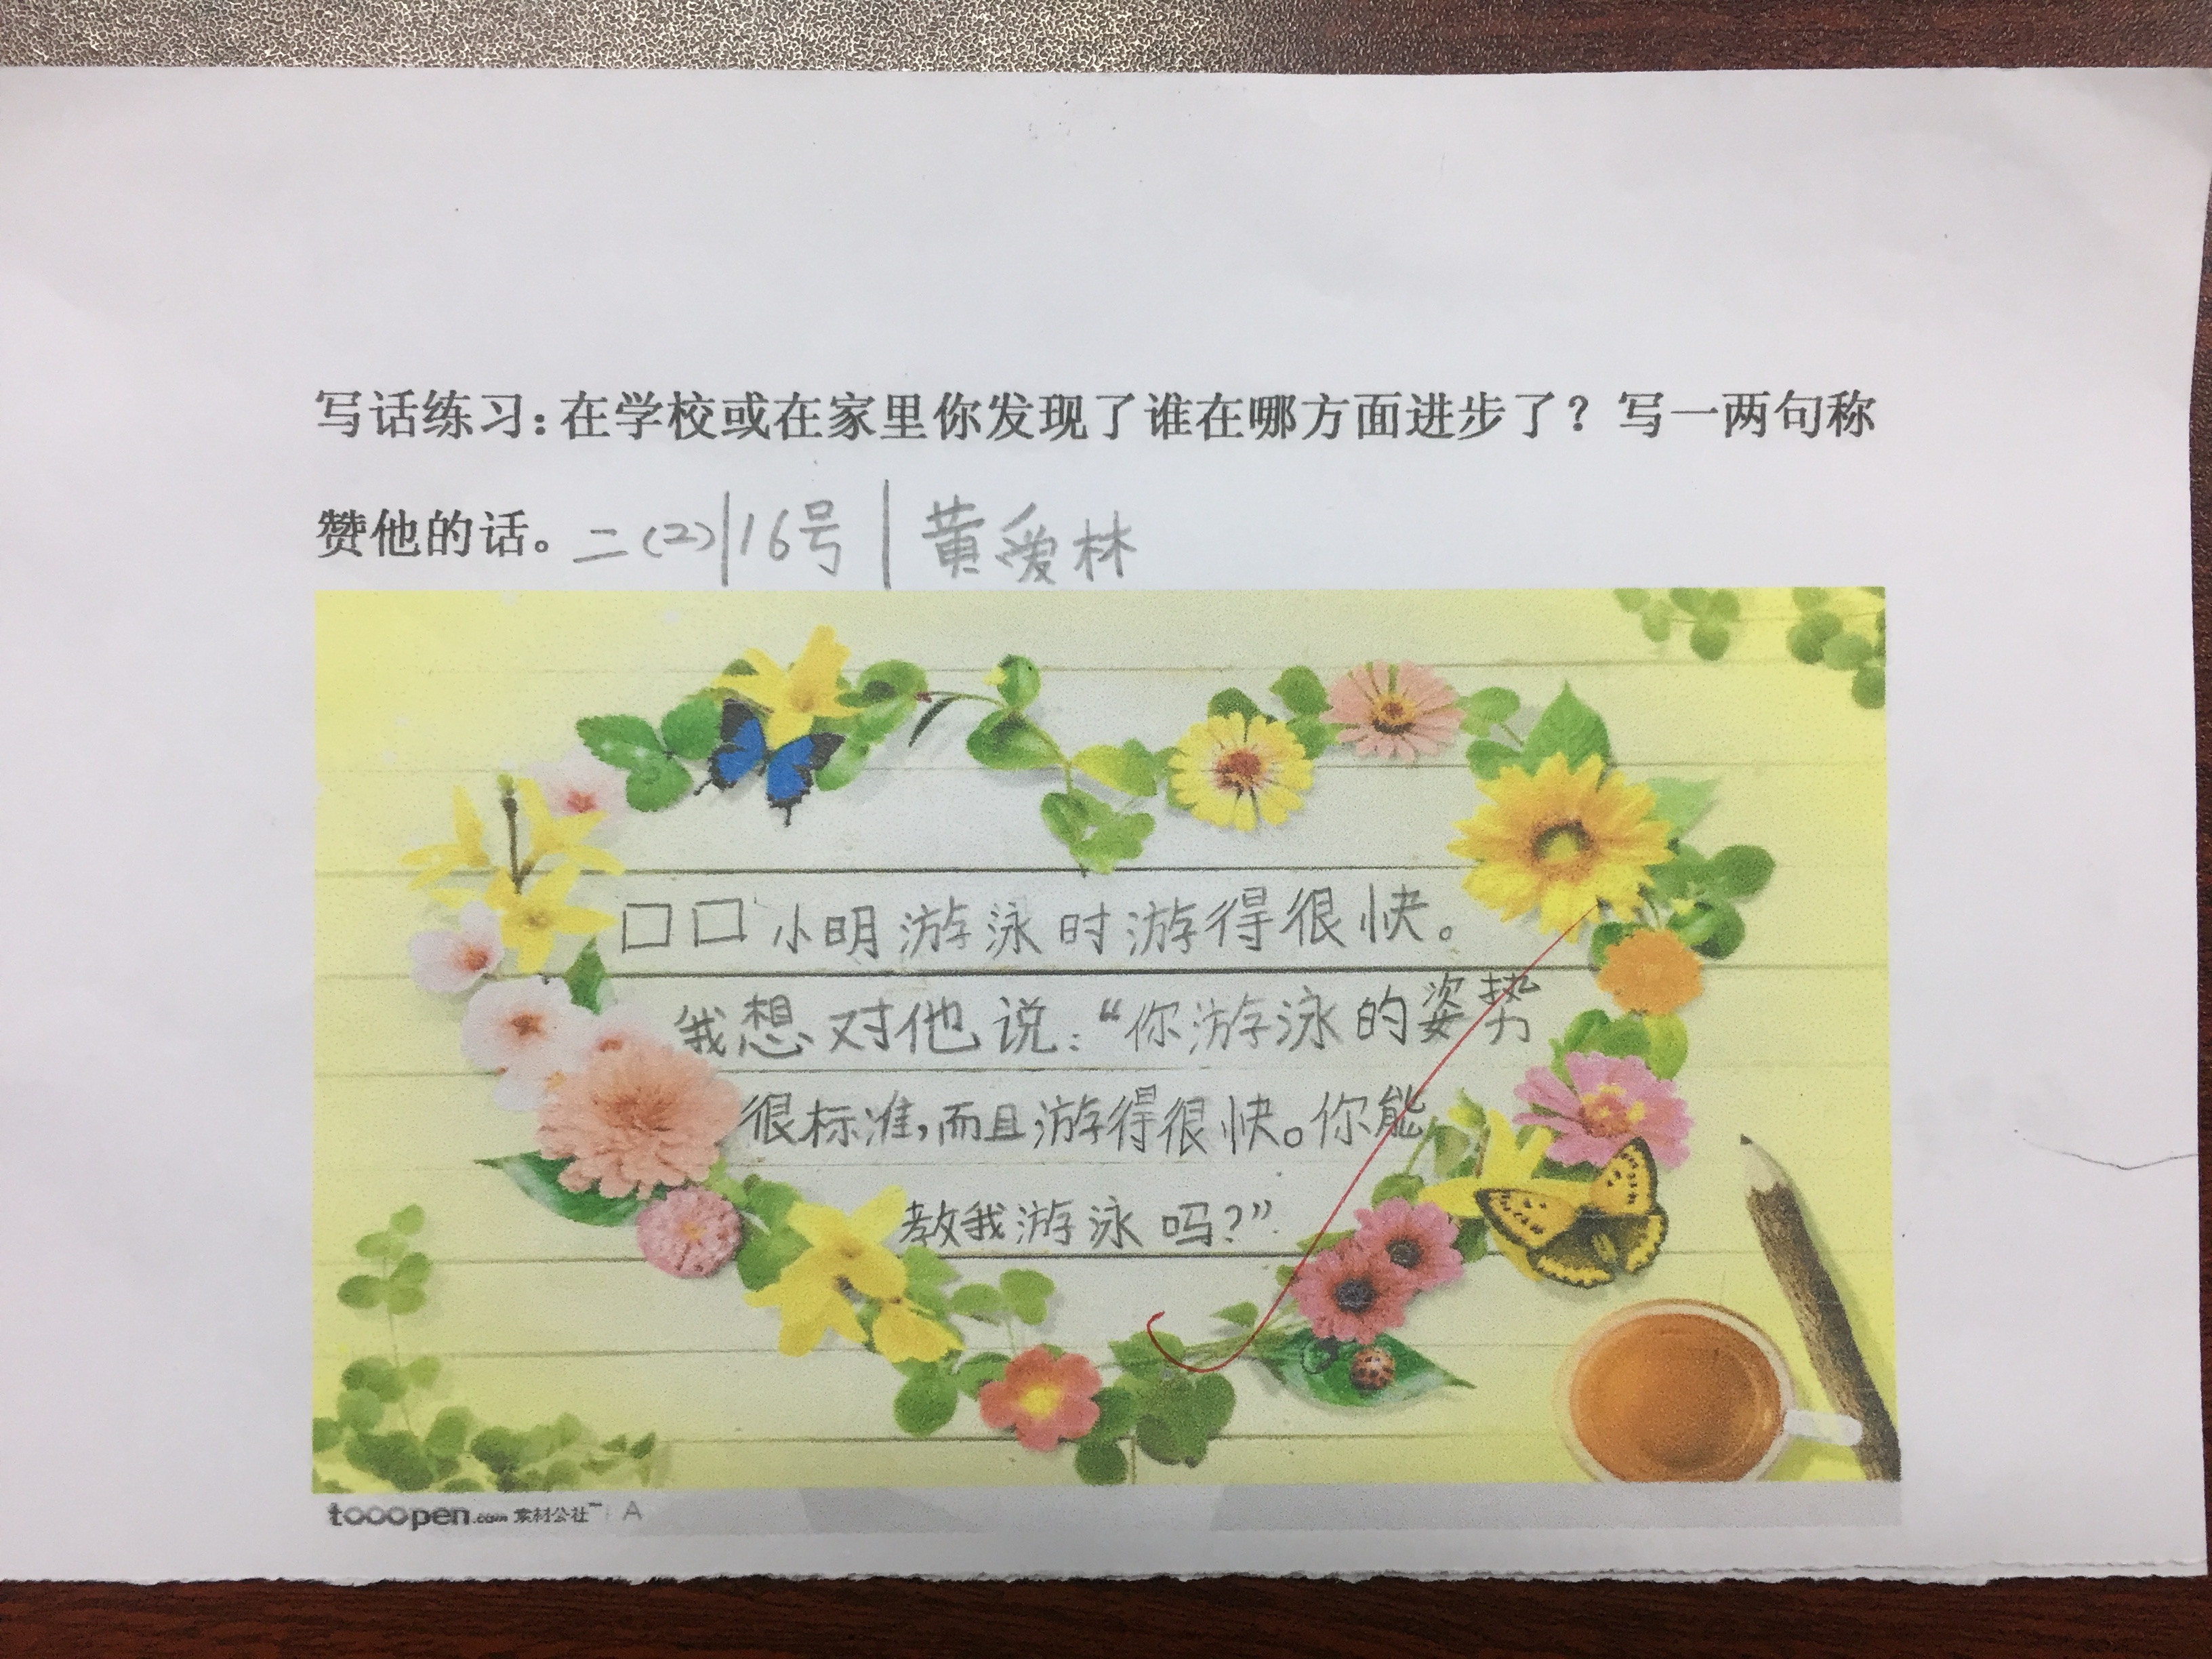 写话练习：在学校或在家里你发现了谁在哪方面进步了？写一两句称
赞他的话。二(2)|16号|黄爱林
口口小明游泳时游得很快。
我想对他说：“你游泳的姿势
很标准，而且游得很快。你能
教我游泳吗？”
tooopen.com 素材公社 A